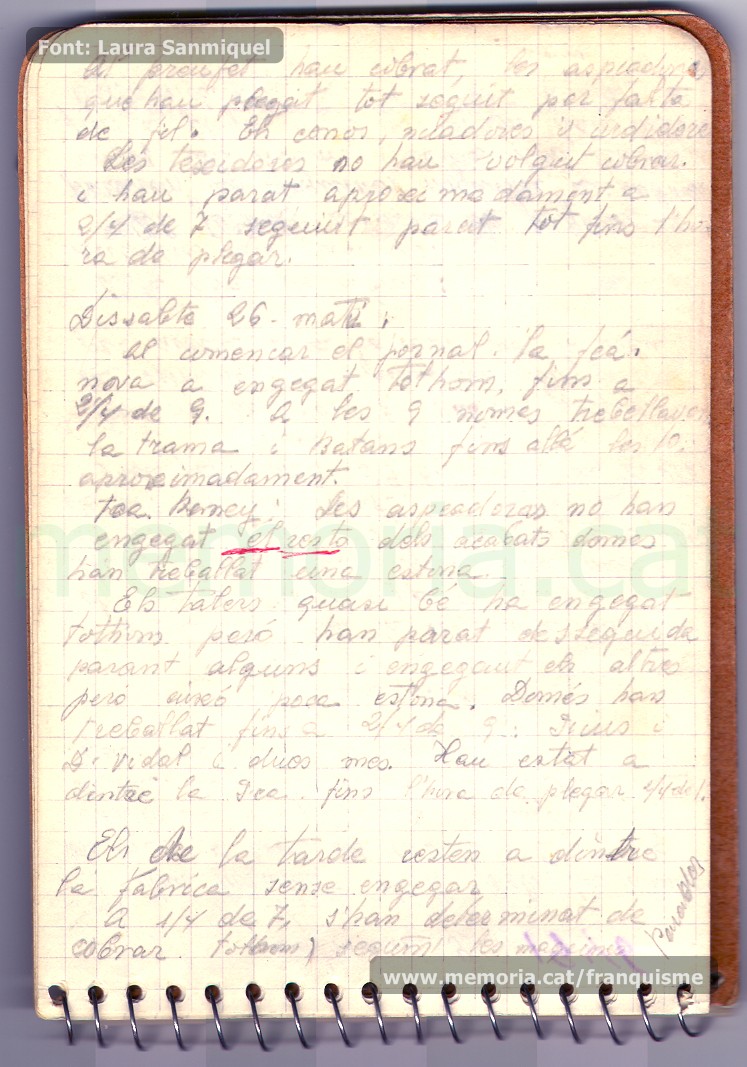 Font: Laura Sanmiquel
El proufet hau cobrat, les aspiadores
que han plegat tot seguit per falta
de fil. Els conos, nuadores i urdidores
Les texidores no han volgut cobrar.
i han parat aproximadament a
2/4 de 7 seguint parat tot fins l'ho
ra de plegar.
Dissabte 26 - mati.
Al comencar el jornal. la fca.
nova a engegat tothom, fins a
2/4 de 9. A les 9 nomes treballaven
la trama i Batans fins allá les 10.
aproximadament.
fca. Les aspeadoras no han
engegat el resto dels acabats domes
han treballat una estona.
Els talers quasi bé ha engegat
tothom peró han parat desseguida
parant alguns i engegant els altres
peró aixó poca estona. Domés han
treballat fins a 2/4 de 9. i
D. Vidal i duos mes. Hau estat a
dintre la Fca. fins l'hora de plegar 1/4 de 1.
Els de la tarde resten a dintre
la fabrica sense engegar
A 1/4 de 7, s'han determinat de
cobrar tothom, segunt les maquines
parables
memoria.cat
www.memoria.cat/franquisme